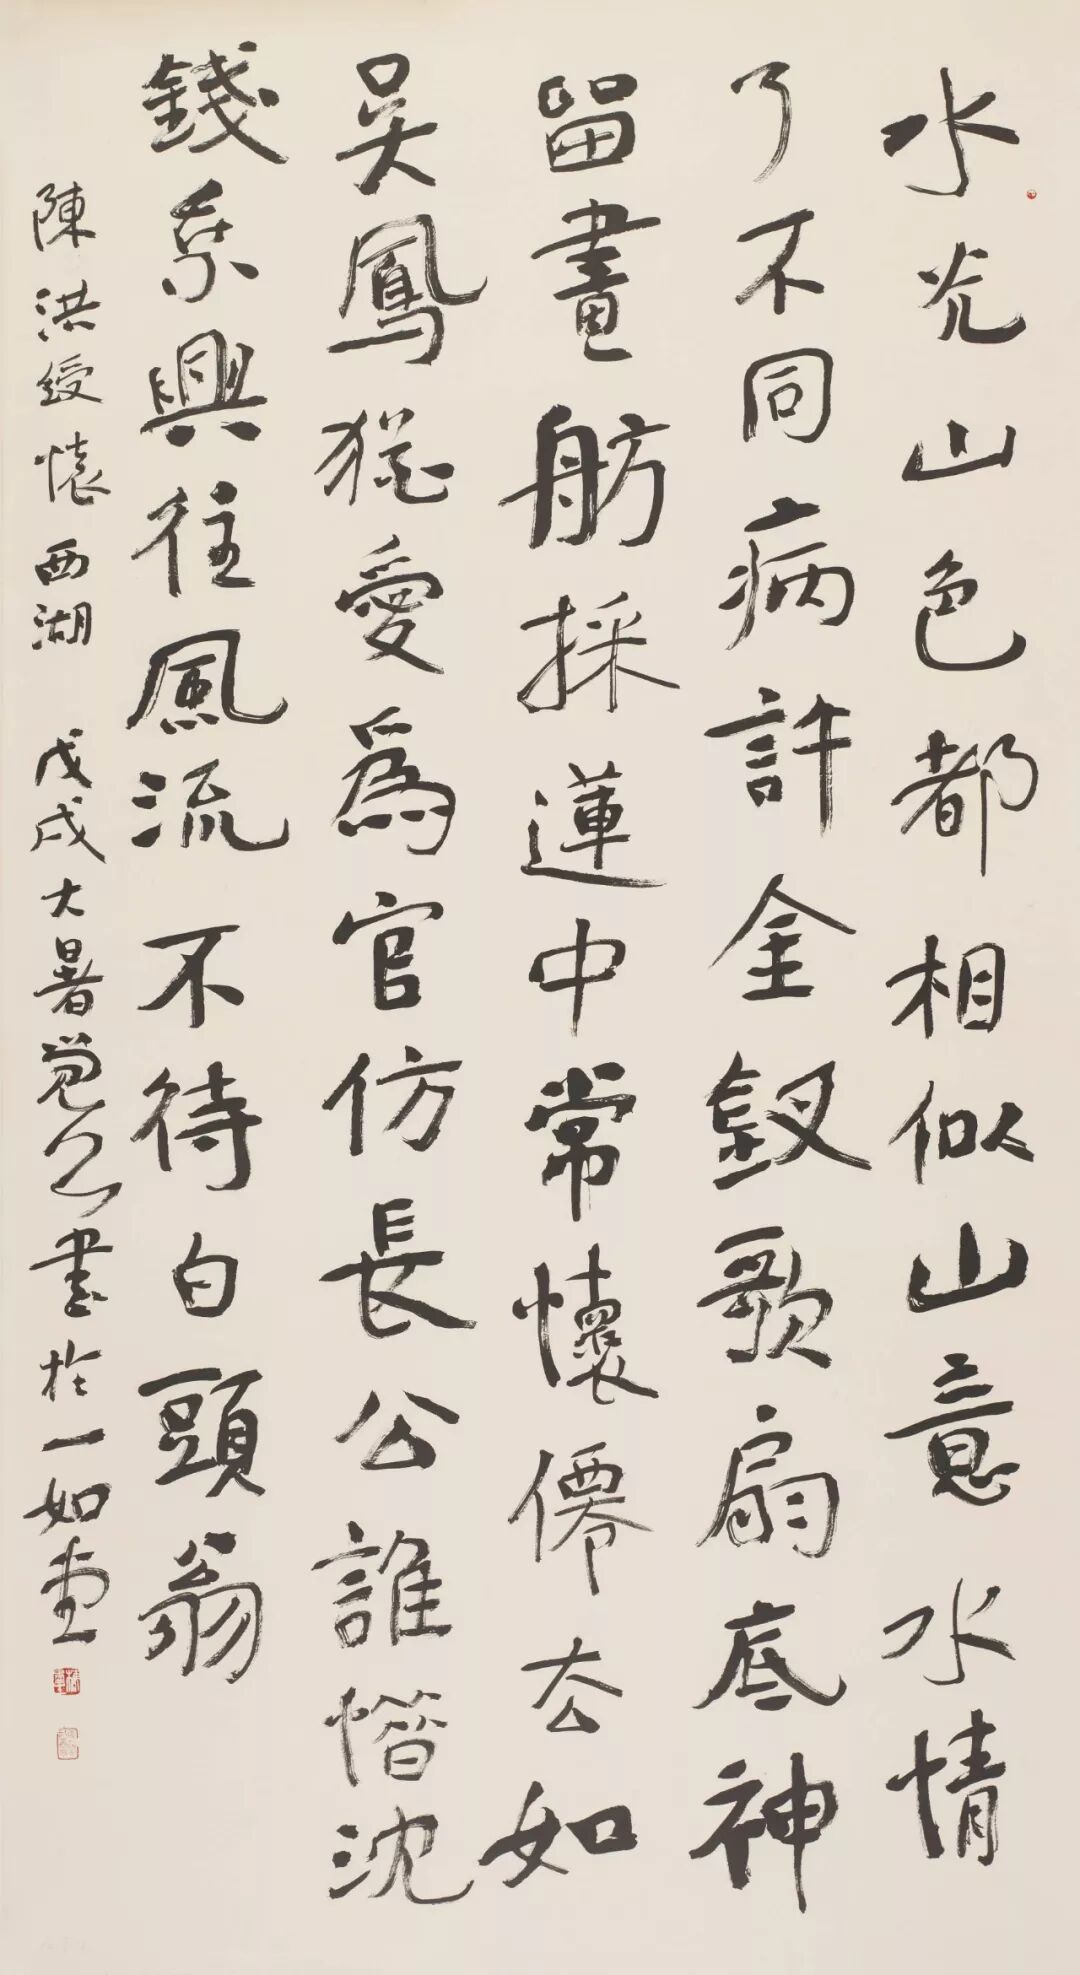 水光山色都相似山意水情
了不同病許金釵歌扇底神
留畫舫採蓮中常懷僊去如
吳鳳猶愛爲官仿長公誰沈
錢乘興往風流不待白頭翁
陳洪綬懷西湖 戊戌大暑覺公書於一如堂